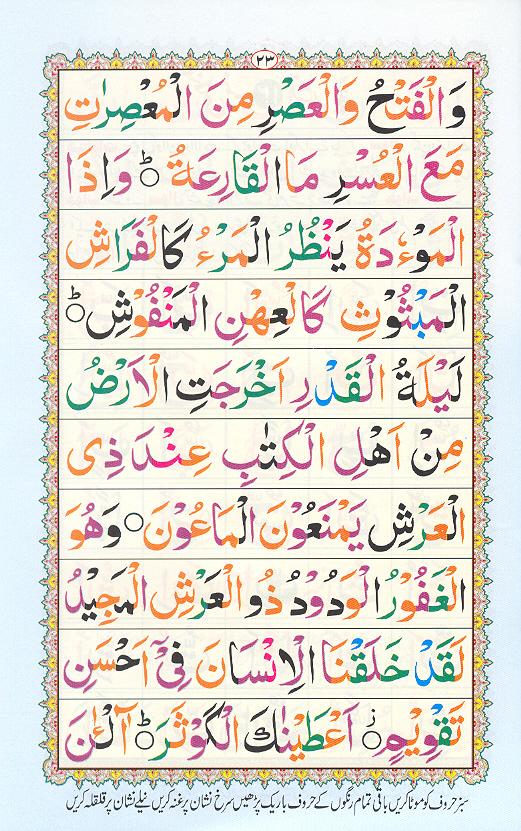 ٢٣
وَالْفَتْحُ وَالْعَصْرِ مِنَ الْمُعْصِرٰتِ
مَعَ الْعُسْرِ مَا الْقَارِعَةُ ○ؕ وَاِذَا
الْمَوْءٗدَةُ يَنْظُرُ الْمَرْءُ كَالْفَرَاشِ
الْمَبْثُوْثِ كَالْعِهْنِ الْمَنْفُوْشِ ○ؕ
لَيْلَةُ الْقَدْرِ اَخْرَجَتِ الْاَرْضُ
مِنْ اَهْلِ الْكِتٰبِ عِنْدَ ذِى
الْعَرْشِ يَمْنَعُوْنَ الْمَاعُوْنَ ○ وَهُوَ
الْغَفُوْرُ الْوَدُوْدُ ذُو الْعَرْشِ الْمَجِيْدُ
لَقَدْ خَلَقْنَا الْاِنْسَانَ فِىْٓ اَحْسَنِ
تَقْوِيْمٍ ○ز اَعْطَيْنٰكَ الْكَوْثَرَ ○ؕ آٰلْـٰٔنَ
سبز حروف کو موٹا کریں باقی تمام رنگوں کے حروف باریک پڑھیں سرخ نشان پر غنہ کریں نیلے نشان پر قلقلہ کریں